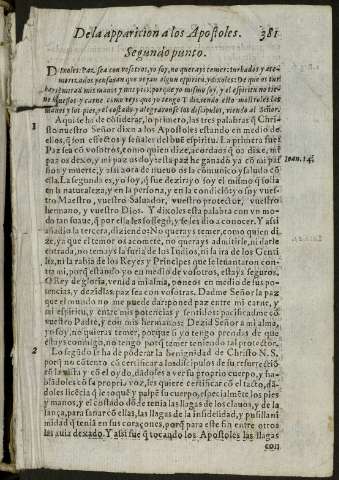 De la apparicion a los Apostoles. 381
Segundo punto.
Dixoles: Paz sea con vosotros, yo soy, no querays temer: turbados y ate-
morizados pensauan que veyan algun espiritu, y dixoles: De que os tur
bays? mirad mis manos y mis pies; porque yo mismo soy, y el espiritu no tie
ne huessos y carne como veys que yo tengo. Y diziendo esto mostroles las
manos y los pies, y el costado y alegraronse los discipulos, viendo al Señor.
1 Aqui se ha de cõsiderar, lo primero, las tres palabras q̃ Chri
sto nuestro Señor dixo a los Apostoles estando en medio de
ellos, q̃ son effectos y señales del buẽ espiritu. La primera fue:
Paz sea cõ vosotros, como quien dize, acordaos q̃ os dixe, mi
paz os dexo, y mi paz os doy: esta paz he ganado ya cõ mi pas Ioan. 14.
siõ y muerte, y assi aora de nueuo os la comunico y saludo cõ
ella. La segunda es, yo soy, q̃ fue dezir: yo soy el mismo q̃ solia
en la naturaleza, y en la persona, y en la condiciõ: yo soy vues-
tro Maestro, vuestro Saluador, vuestro protector, vuestro
hermano, y vuestro Dios. Y dixoles esta palabra con vn mo-
do tan suaue, q̃ por ella les sossegò, y se les dio a conocer. Y assi
añadio la tercera, diziẽdo: No querays temer, como quien di-
ze, ya que el temor os acomete, no querays admitirle, ni darle
entrada, no temays la furia de los Iudios, ni la ira de los Genti
les, ni la rabia de los Reyes y Principes que se leuantaron con-
tra mi, porq̃ estando yo en medio de vosotros, estays seguros.
O Rey de gloria, venid a mi alma, poneos en medio de sus po-
tencias, y dezidlas paz sea con vosotras. Dadme Señor la paz
que el mundo no me puede dar: poned paz entre mi carne, y
mi espiritu, y entre mis potencias y sentidos: pacificadme cõ
vuestro Padre, y con mis hermanos: Dezid Señor a mi alma,
yo soy, no quieras temer, porque si yo tengo prendas de que
estays conmigo, no tengo porq̃ temer teniendo tal protector.
2 Lo segũdo se ha de poderar la benignidad de Christo N. S.
porq̃ no cõtento cõ certificar a los discipulos de su resurreciõ
cõ la vista y cõ el oydo, dãdoles a ver su proprio cuerpo, y ha-
blãdoles cõ su propria voz, les quiere certificar cõ el tacto, dã-
doles licẽcia q̃ le toquẽ y palpẽ su cuerpo, especialmẽte los pies
y manos, y el costado dõde tenia las llagas de los clauos, y de la
lança, para sanar cõ ellas, las llagas de la infidelidad, y pusilani
midad q̃ teniã en sus coraçones, porq̃ para este fin entre otros
las auia dexado. Y assi fue q̃ tocando los Apostoles las llagas
con